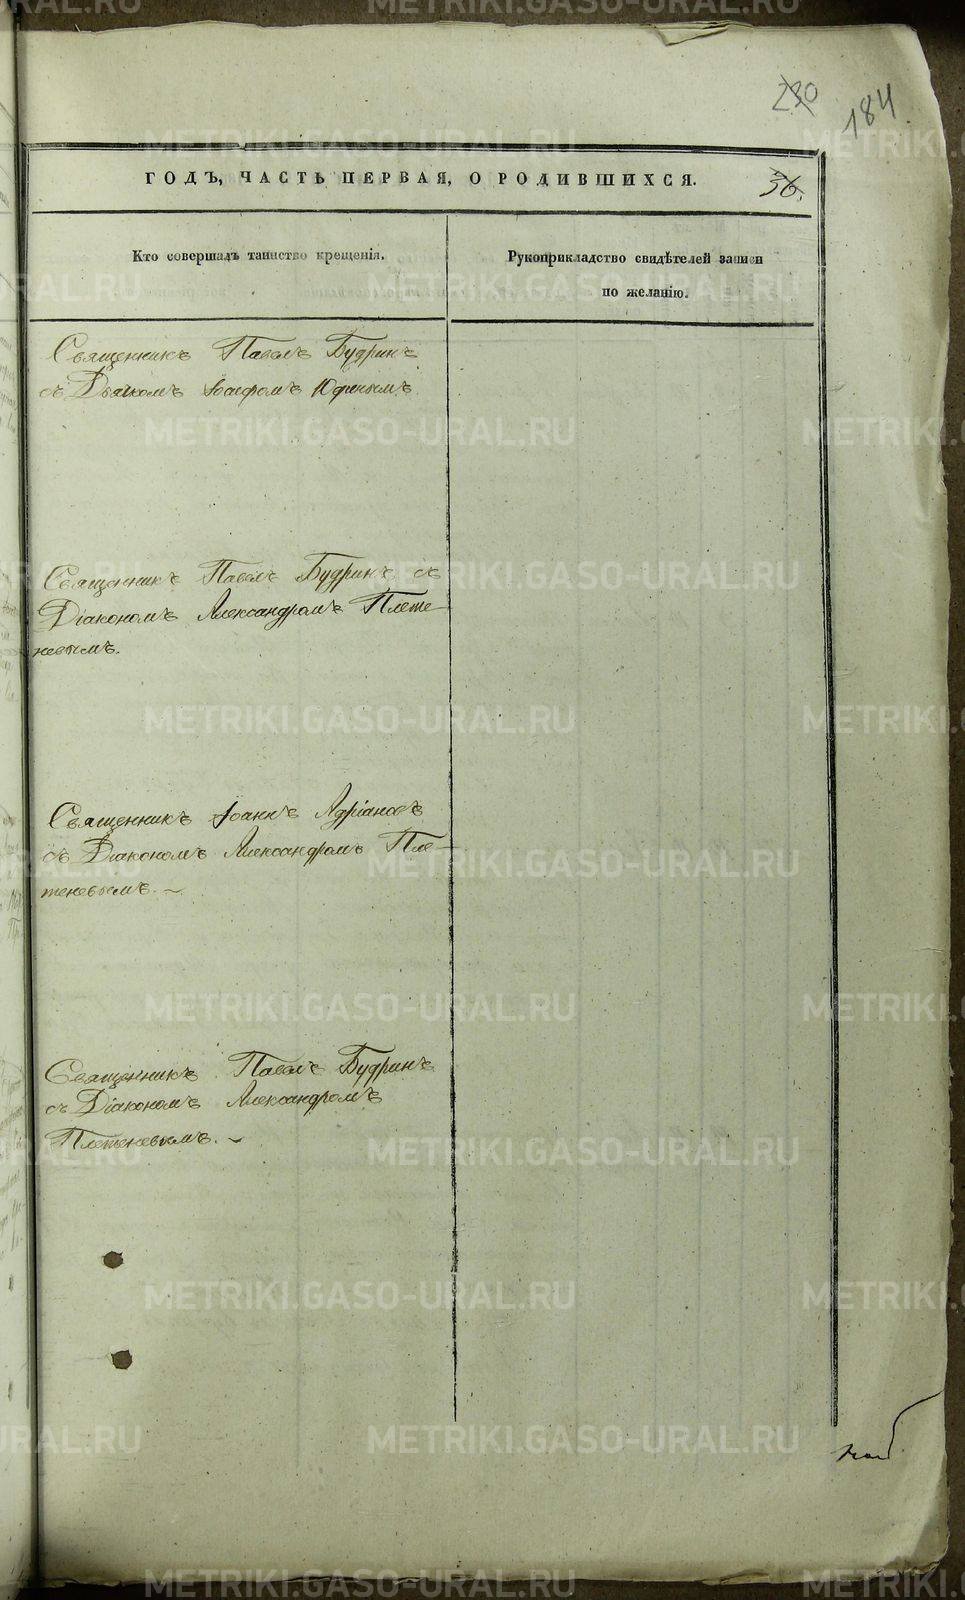 230
184
ГОДЪ, ЧАСТЬ ПЕРВАЯ, О РОДИВШИХСЯ.
36.
Кто совершалъ таинство крещенія.
Рукоприкладство свидѣтелей записи
по желанію.
Священникъ Павелъ Будринъ
съ Дьякомъ Іосифомъ Юдинымъ.
Священникъ Павелъ Будринъ съ
Діакономъ Александромъ Плете-
невымъ.
Священникъ Іоаннъ Адріановъ
съ Діакономъ Александромъ Пле-
теневымъ. –
Священникъ Павелъ Будринъ
съ Діакономъ Александромъ
Плетеневымъ. –
METRIKI.GASO-URAL.RU